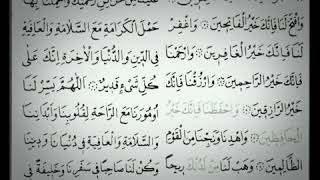 وَافْتَحْ لَنَا فَإِنَّكَ خَيْرُ الْفَاتِحِينَ ۞ وَاغْفِرْ
لَنَا فَإِنَّكَ خَيْرُ الْغَافِرِينَ ۞ وَارْحَمْنَا
فَإِنَّكَ خَيْرُ الرَّاحِمِينَ ۞ وَارْزُقْنَا فَإِنَّكَ
خَيْرُ الرَّازِقِينَ ۞ وَاحْفَظْنَا فَإِنَّكَ خَيْرُ
الْحَافِظِينَ ۞ وَاهْدِنَا وَنَجِّنَا مِنَ الْقَوْمِ
الظَّالِمِينَ ۞ وَهَبْ لَنَا مِنْ لَدُنْكَ رِيحًا
حَمْلَ الْكَرَامَةِ مَعَ السَّلَامَةِ وَالْعَافِيَةِ
فِي الدِّينِ وَالدُّنْيَا وَالْآخِرَةِ إِنَّكَ عَلَى
كُلِّ شَيْءٍ قَدِيرٌ ۞ اَللّٰهُمَّ يَسِّرْ لَنَا
أُمُورَنَا مَعَ الرَّاحَةِ لِقُلُوبِنَا وَأَبْدَانِنَا
وَالسَّلَامَةِ وَالْعَافِيَةِ فِي دُنْيَانَا وَدِينِنَا
وَكُنْ لَنَا صَاحِبًا فِي سَفَرِنَا وَخَلِيفَةً فِي